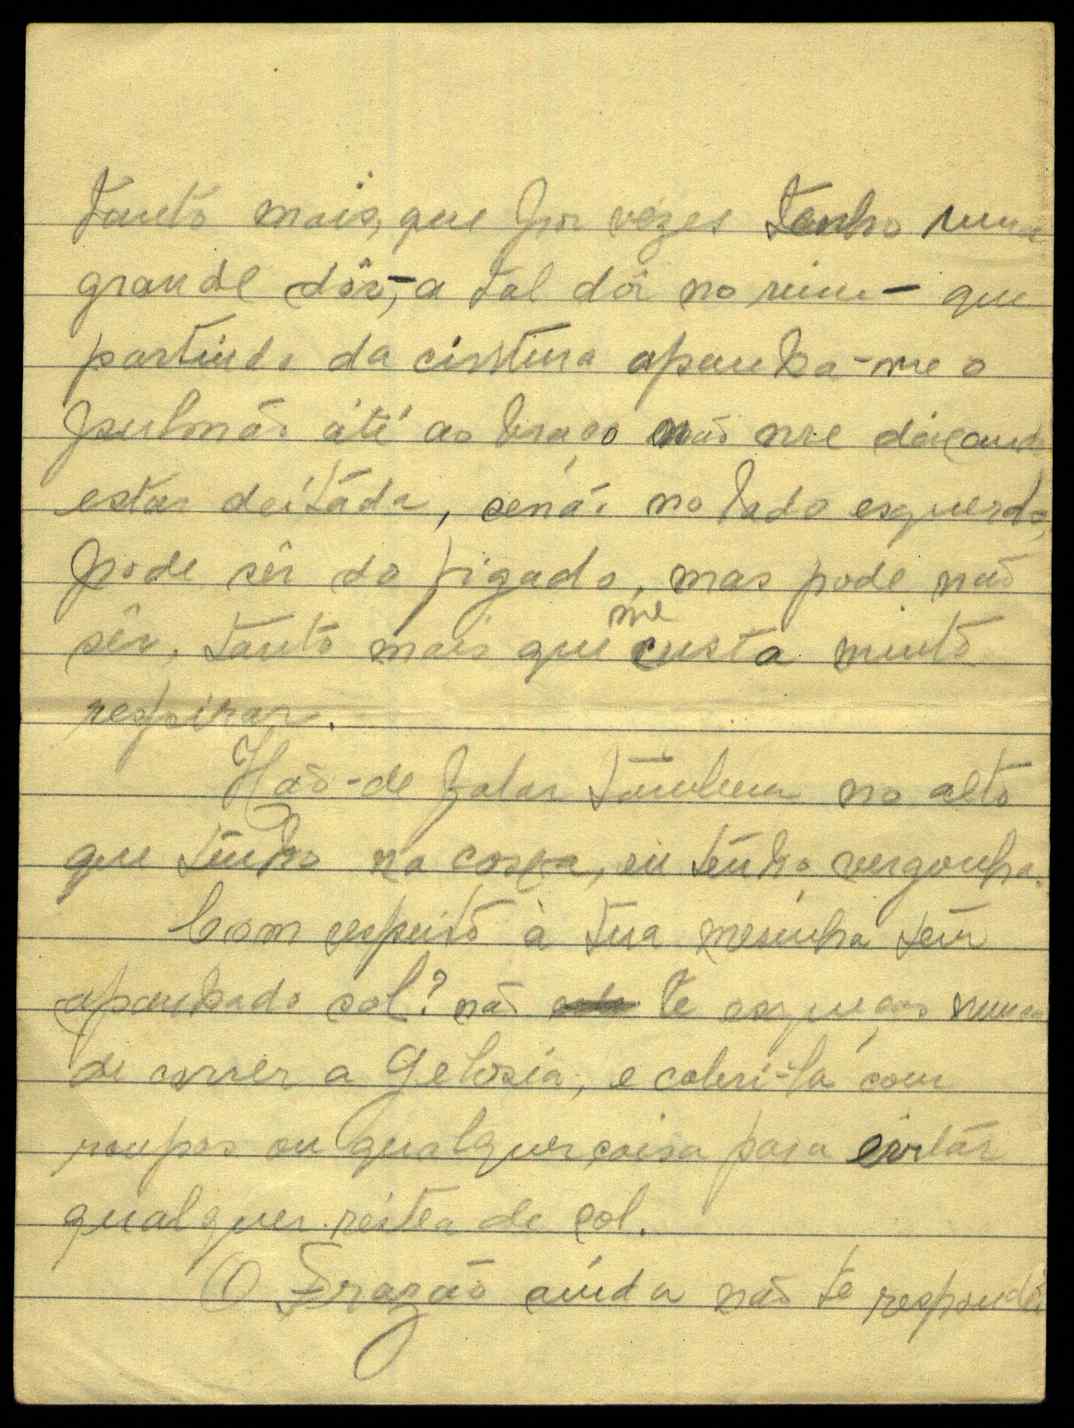 tanto mais, que por vezes tenho uma
grande dôr, – a tal dôr no rim – que
partindo da cinttura apanha-me o
pulmão àté ao braço não me deiçando
estar deitáda, senão no lado esquerdo,
pode sêr do figado, mas pode não
sêr, tanto mais que me custa muito
respirar.
Hão-de falar támbem no alto
que tenho na cosxa, eu tenho vergonha.
Com respeito à tua mesinha tem
apanhado sol? não te esqueças nunca
de correr a gelosia, e cobri-la com
roupas ou qualquer coisa para evitár
qualquer réstea de sol.
O Frazão ainda não te respondêu